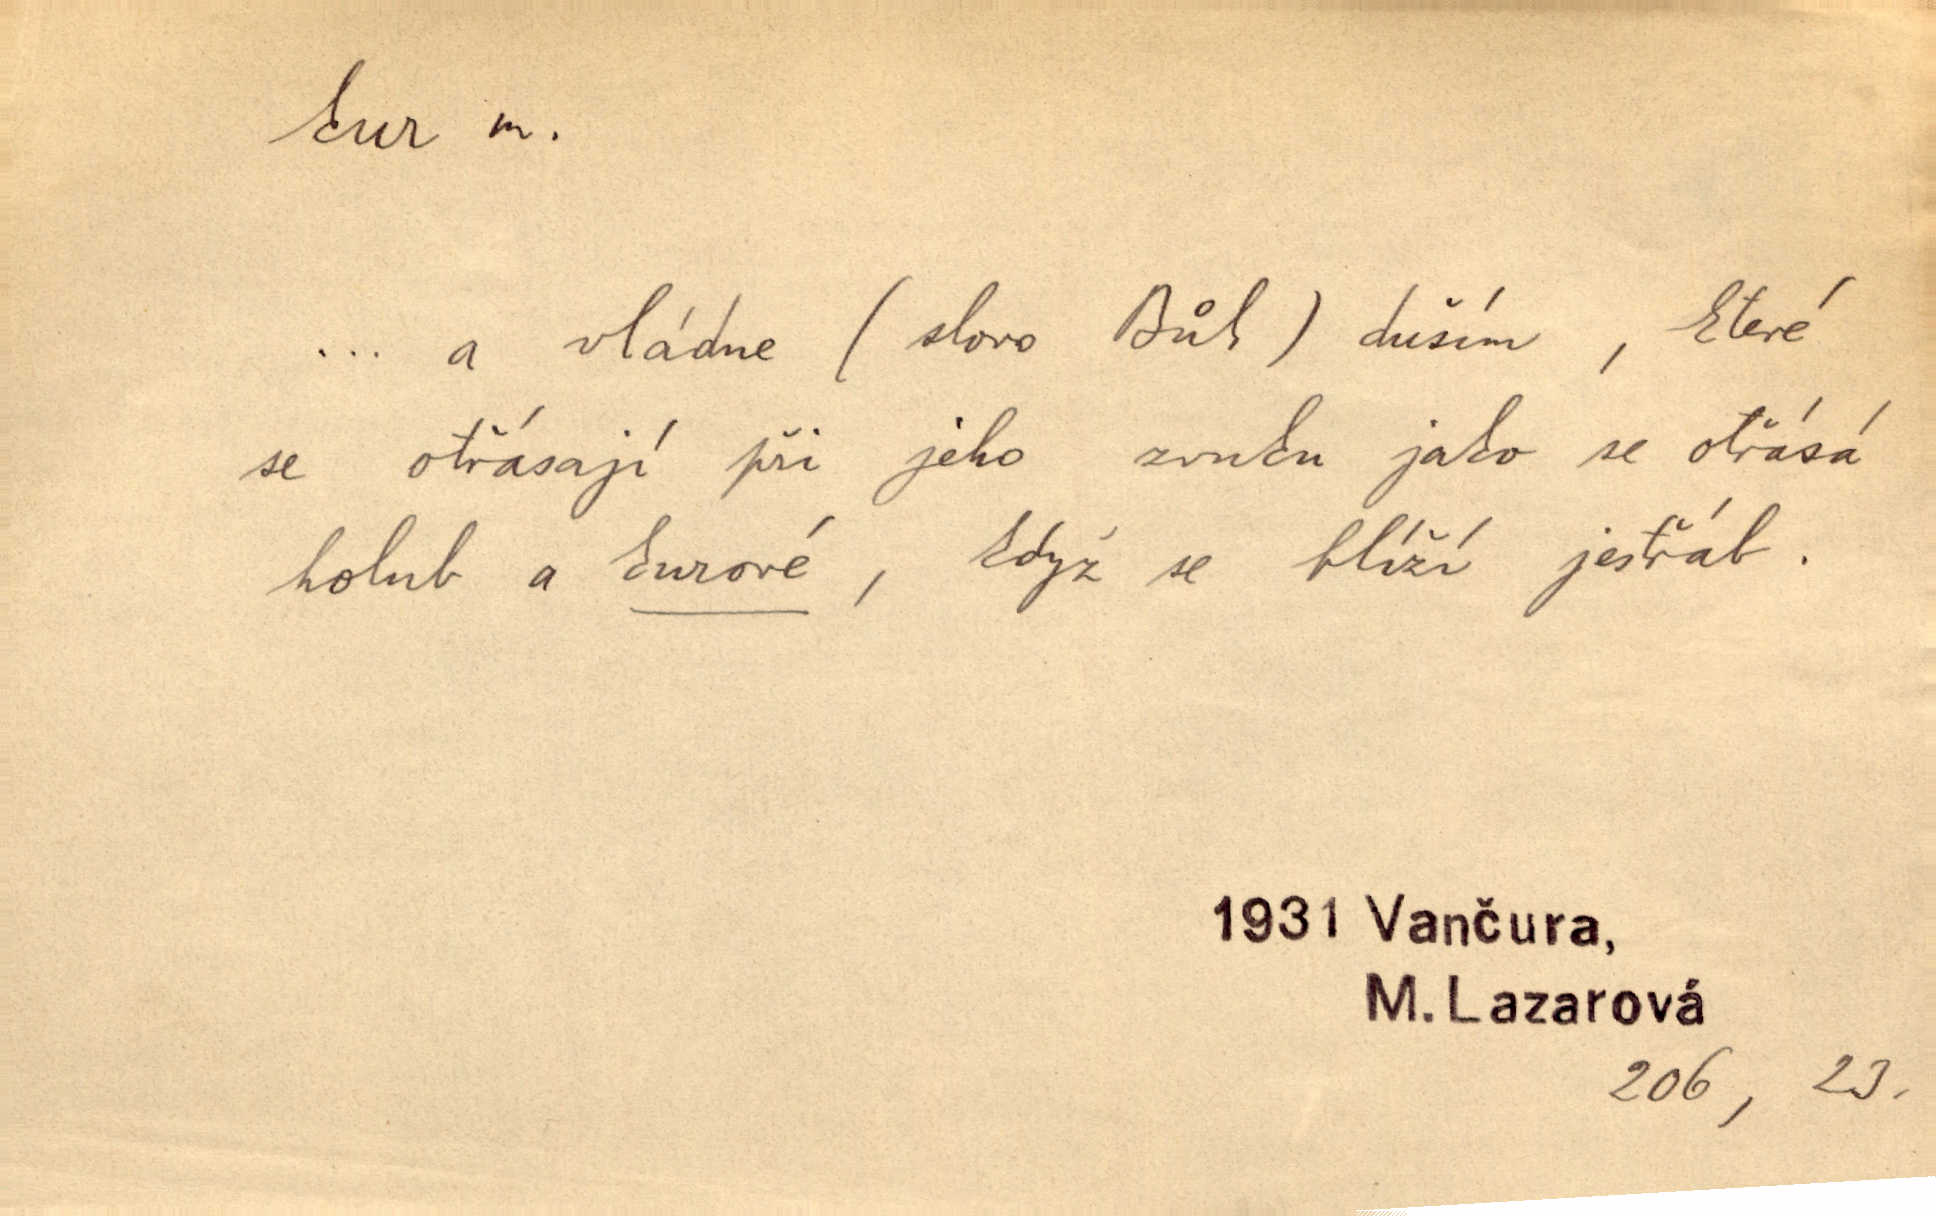 kur m.
... a vládne (slovo Bůh) duším, které
se otřásají při jeho zvuku jako se otřásá
holub a kurové, když se blíží jestřáb.
1931 Vančura,
M. Lazarová
206, 23.